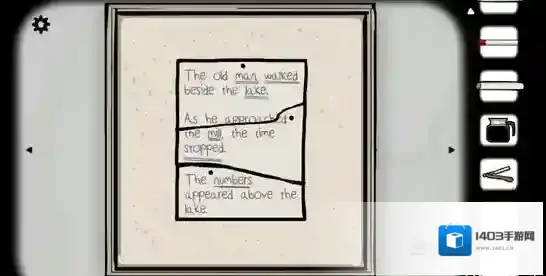 The old man walked
beside the lake.
As he approached
the mill the time
stopped.
The numbers
appeared above the
lake.
1403手游网
www.1403.com